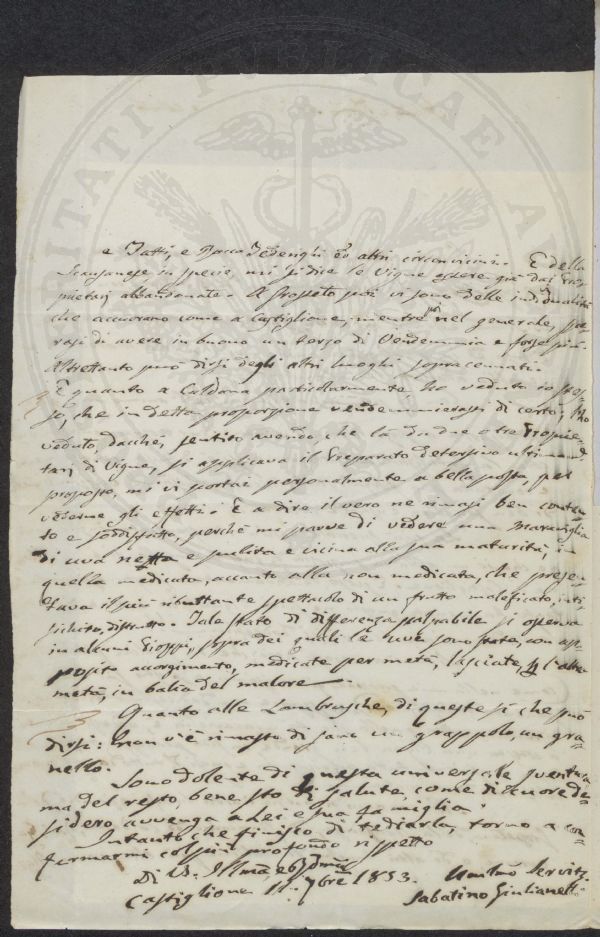 e Tatti, e Rocca Tederighi ed altri circonvicini. E della
Scansanese in specie mi si dice le Vigne essere già dai Pro-
prietarj abbandonate. A Grosseto poi vi sono delle individualità
che accorano come a Castiglione, mentre nel generale, spe-
rasi di avere in buono un terzo di Vendemmia e forse più.
Altrettanto può dirsi degli altri luoghi sopracennati.
E quanto a Caldana particolarmente ho veduto io stes-
so, che in detta proporzione vendemmierassi di certo; Ho
veduto, dacché, sentito avendo, che là da due o tre Proprie-
tarj di Vigne, si applicava il Preparato Detersivo ultimam.
proposto, mi vi portai personalmente a bella posta, per
vederne gli effetti. E a dire il vero ne rimasi ben conten-
to e soddisfatto, perché mi parve di vedere una Maraviglia
di uva netta e pulita e vicina alla sua maturità, in
quella medicata, accanto alla non medicata, che presen-
tava il più ributtante spettacolo di un frutto maleficato, inti-
sichito, distrutto. Tale stato di differenza palpabile si osserva
in alcuni Pioppi, sopra dei quali le uve sono state, con ap-
posito accorgimento, medicate per metà, lasciate, p l'altra
metà, in balìa del malore.
Quanto alle Lambrusche, di queste sì che può
dirsi: non v'è rimasto di sano un grappolo, un gra-
nello.
Sono dolente di questa universale sventura
ma del resto, bene sto di salute, come di cuore de-
sidero avvenga a Lei e sua famiglia.
Intanto che finisco di tediarla, torno a con-
fermarmi col più profondo rispetto
Di V. S. Illma
Castiglione 11. 7bre 1853. Umilmo Servitre
Sabatino Giulianetti